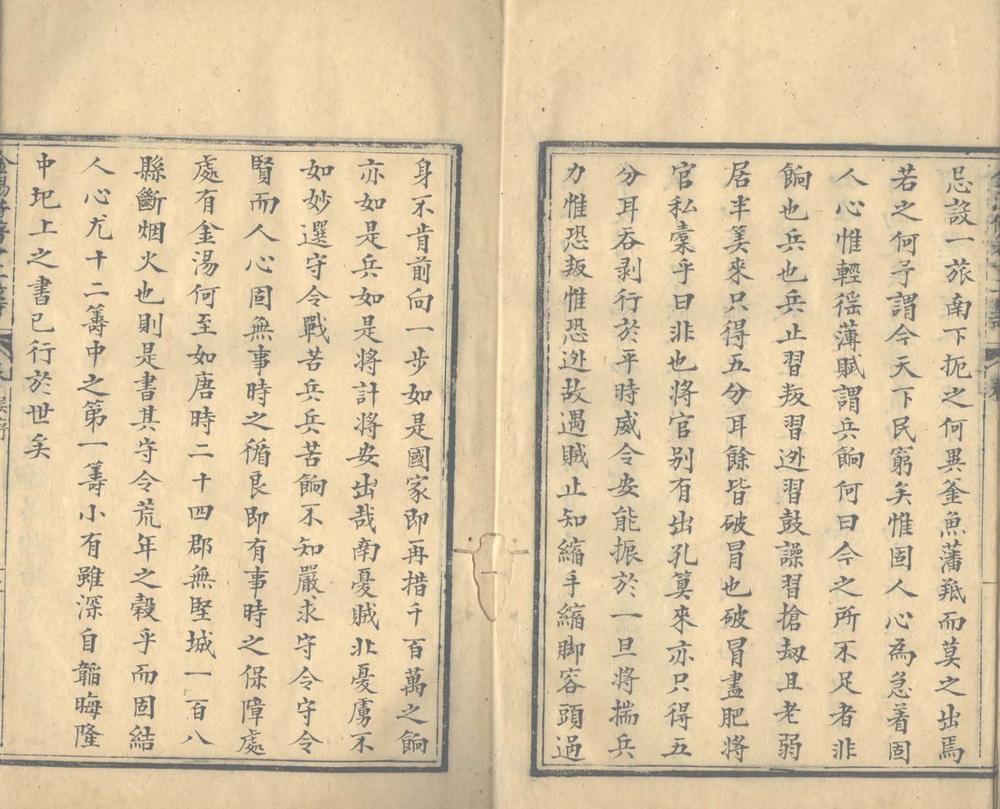 忌設一旅南下扼之何異釜魚藩羝而莫之出焉
若之何予謂今天下民窮矣惟固人心為急着固
人心惟輕徭薄賦謂兵餉何曰今之所不足者非
餉也兵也兵止習叛習迯習鼓譟習搶刼且老弱
居半筭來只得五分耳餘皆破冒也破冒盡肥將
官私槖乎曰非也將官别有出孔筭來亦只得五
分耳吞剥行於平時威令安能振於一旦將揣兵
力惟恐叛惟恐迯故遇賊止知縮手縮脚容頭過
身不肯前向一步如是國家即再措千百萬之餉
亦如是兵如是將計將安出哉南憂賊北憂虜不
如妙選守令戰苦兵兵苦餉不知嚴求守令守令
賢而人心固無事時之循良即有事時之保障處
處有金湯何至如唐時二十四郡無堅城一百八
縣斷烟火也則是書其守令荒年之穀乎而固結
人心尤十二籌中之第一籌小有雖深自韜晦隆
中圯上之書已行於世矣